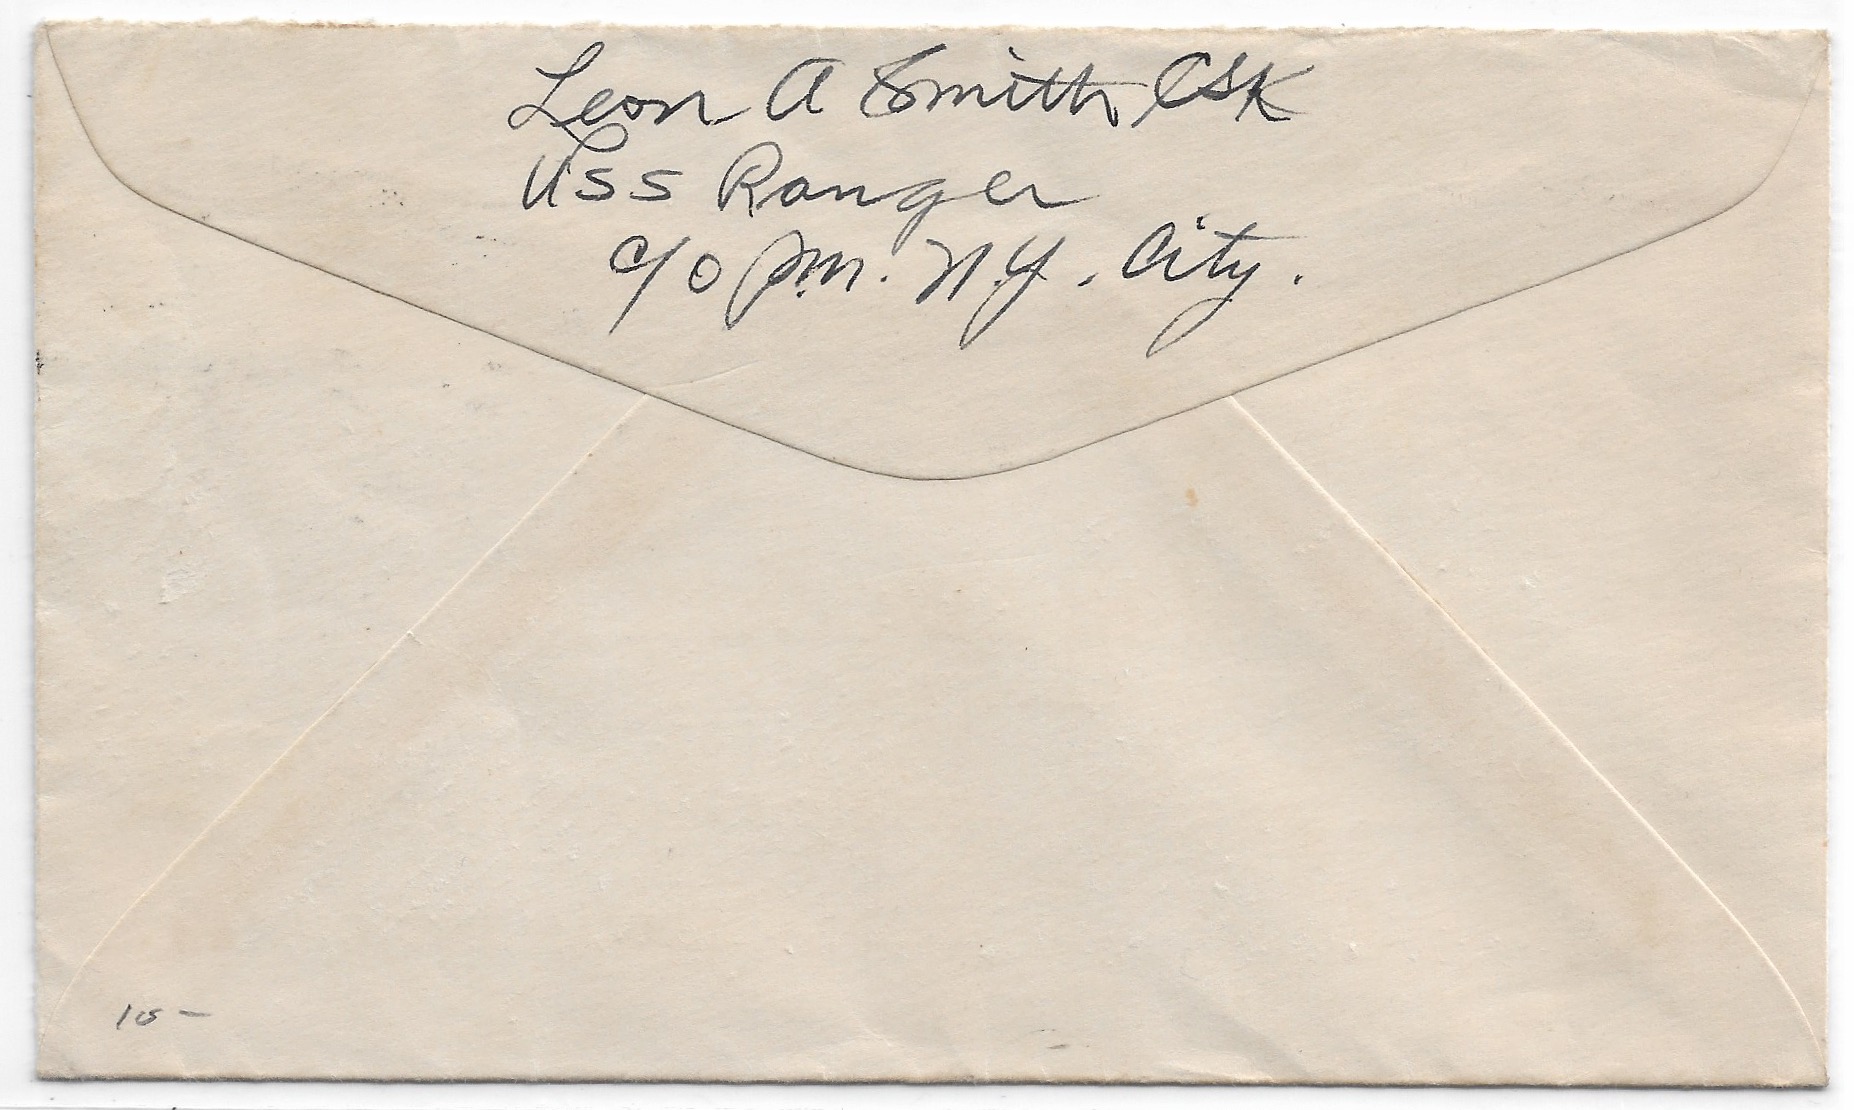 Leon A Smith CSK
USS Ranger
c/o P.M. N.Y. City.
10 -